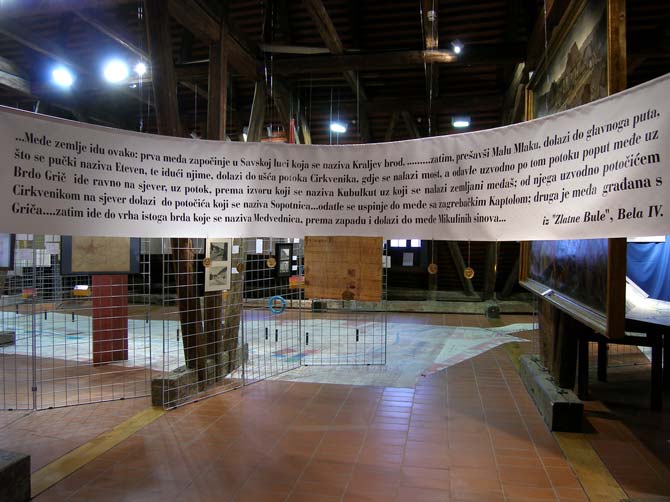 ...Međe zemlje idu ovako: prva međa započinje u Savskoj luci koja se naziva Kraljev brod. .........zatim, prešavši Malu Mlaku, dolazi do glavnoga puta,
što se pučki naziva Eteven, te idući njime, dolazi do ušća potoka Cirkvenika, gdje se nalazi most, a odavle uzvodno po tom potoku poput međe uz
Brdo Grič ide ravno na sjever, uz potok, prema izvoru koji se Kubulkut uz koji se nalazi zemljani međaš; od njega uzvodno potočićem
Cirkvenikom na sjever dolazi do potočića koji se naziva Sopotnica...odatle se uspinje do međe sa zagrebačkim Kaptolom; druga je međa građana s
Griča....zatim ide do vrha istoga brda koje se naziva Medvednica, prema zapadu i dolazi do međe Mikulinih sinova...
iz "Zlatne Bule", Bela IV.